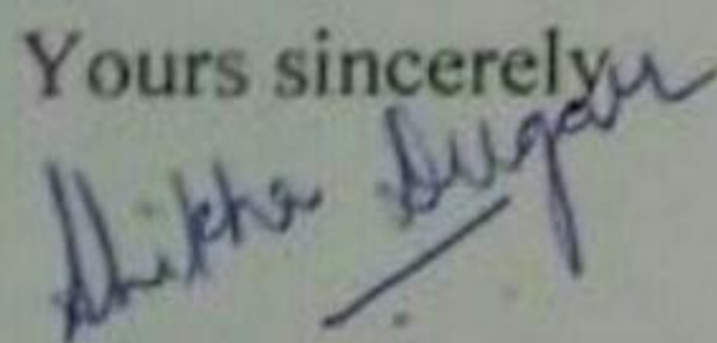 Yours sincerely
Shikha Dugar